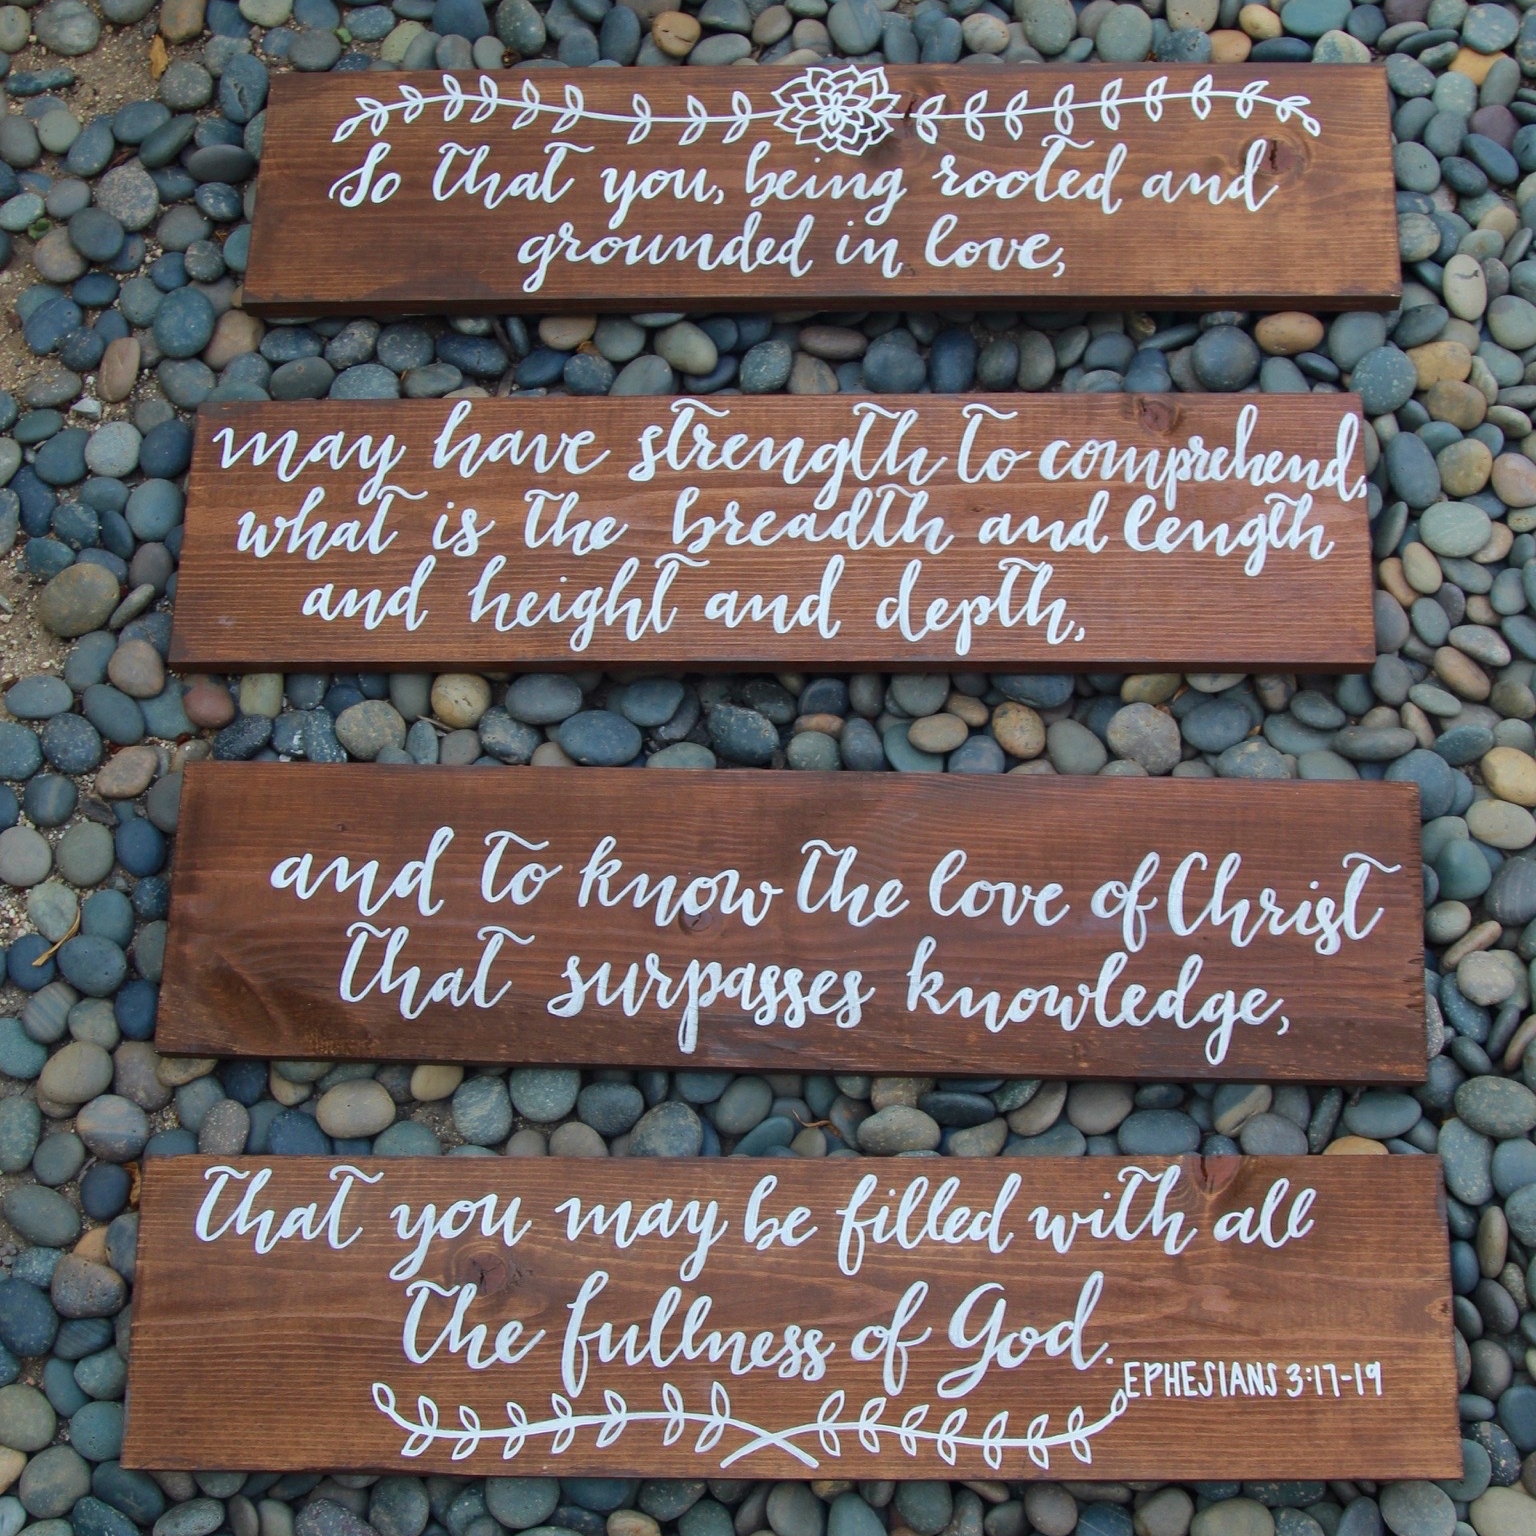 So that you, being rooted and
grounded in love,
may have strength to comprehend,
what is the breadth and length
and height and depth,
and to know the love of Christ
that surpasses knowledge,
that you may be filled with all
the fullness of God.
EPHESIANS 3:17-19